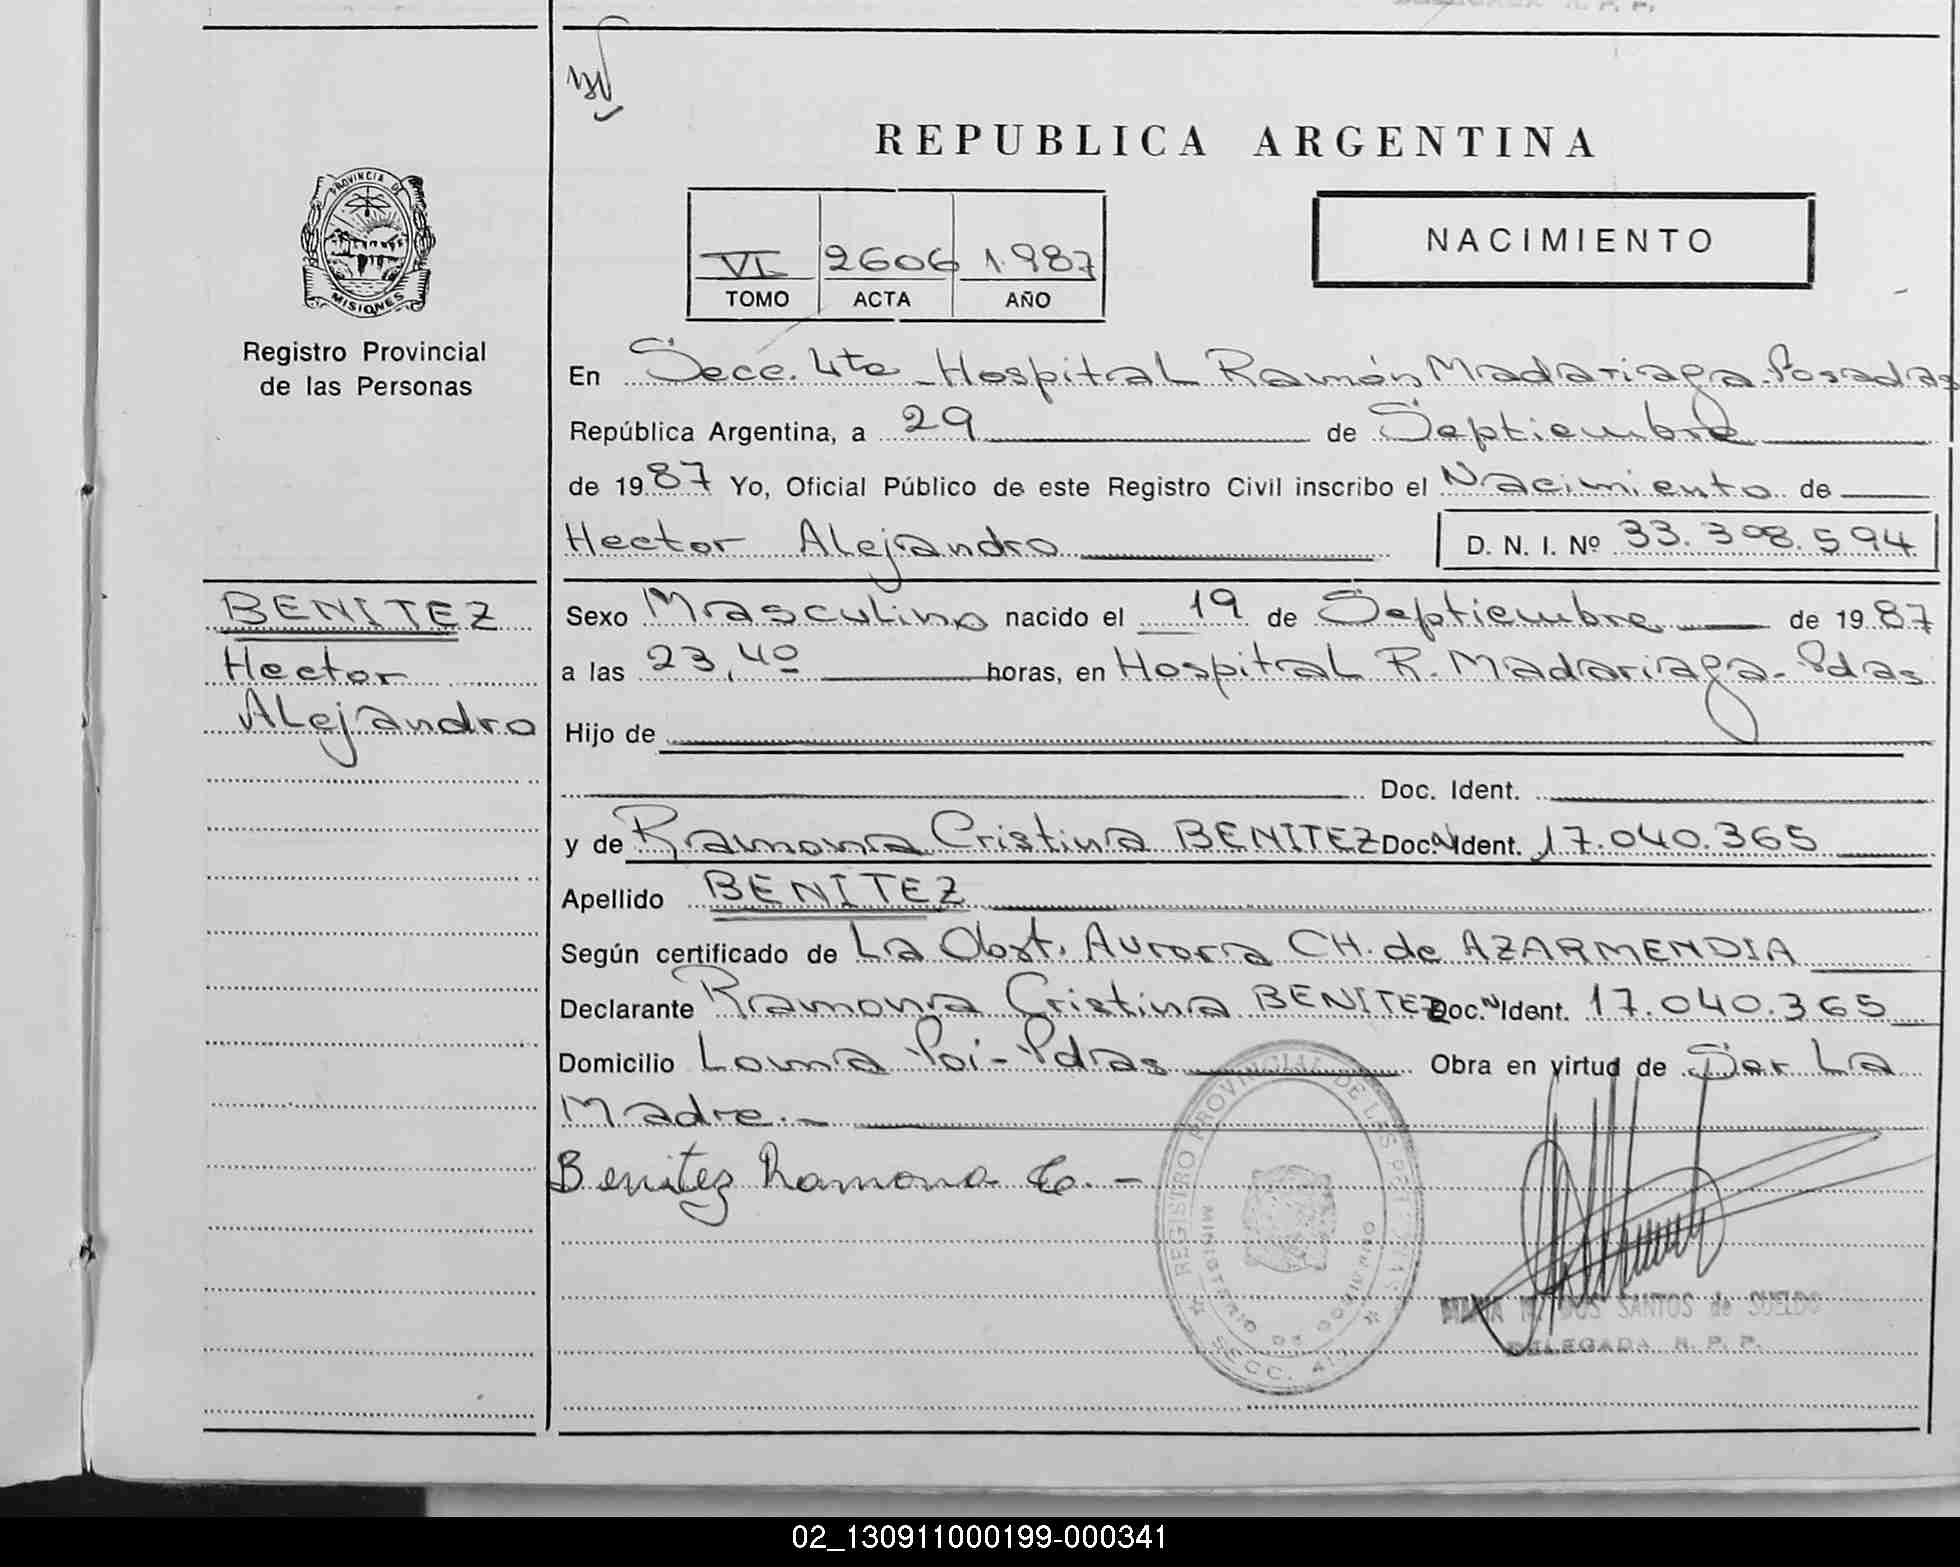 REPUBLICA ARGENTINA
PROVINCIA DE
MISIONES
Registro Provincial
de las Personas
VI 2606 1.987
TOMO ACTA AÑO
NACIMIENTO
En Secc. 4ta - Hospital Ramón Madariaga - Posadas
República Argentina, a 29 de Septiembre
de 1987 Yo, Oficial Público de este Registro Civil inscribo el Nacimiento de
Hector Alejandro D. N. I. Nº 33.398.594
BENITEZ
Hector
Alejandro
Sexo Masculino nacido el 19 de Septiembre de 1987
a las 23,40 horas, en Hospital R. Madariaga - Pdas
Hijo de
Doc. Ident.
y de Ramona Cristina BENITEZ Doc. Ident. 17.040.365
Apellido BENITEZ
Según certificado de La Obst. Aurora CH. de AZARMENDIA
Declarante Ramona Cristina BENITEZ Doc. Ident. 17.040.365
Domicilio Loma Poi - Pdas Obra en virtud de Ser La
Madre.-
Benitez Ramona C. -
REGISTRO PROVINCIAL DE LAS PERSONAS
MINISTERIO DE GOBIERNO
SECC. 4ta
MARIA M. DOS SANTOS de SUELDO
DELEGADA R. P. P.
02_130911000199-000341